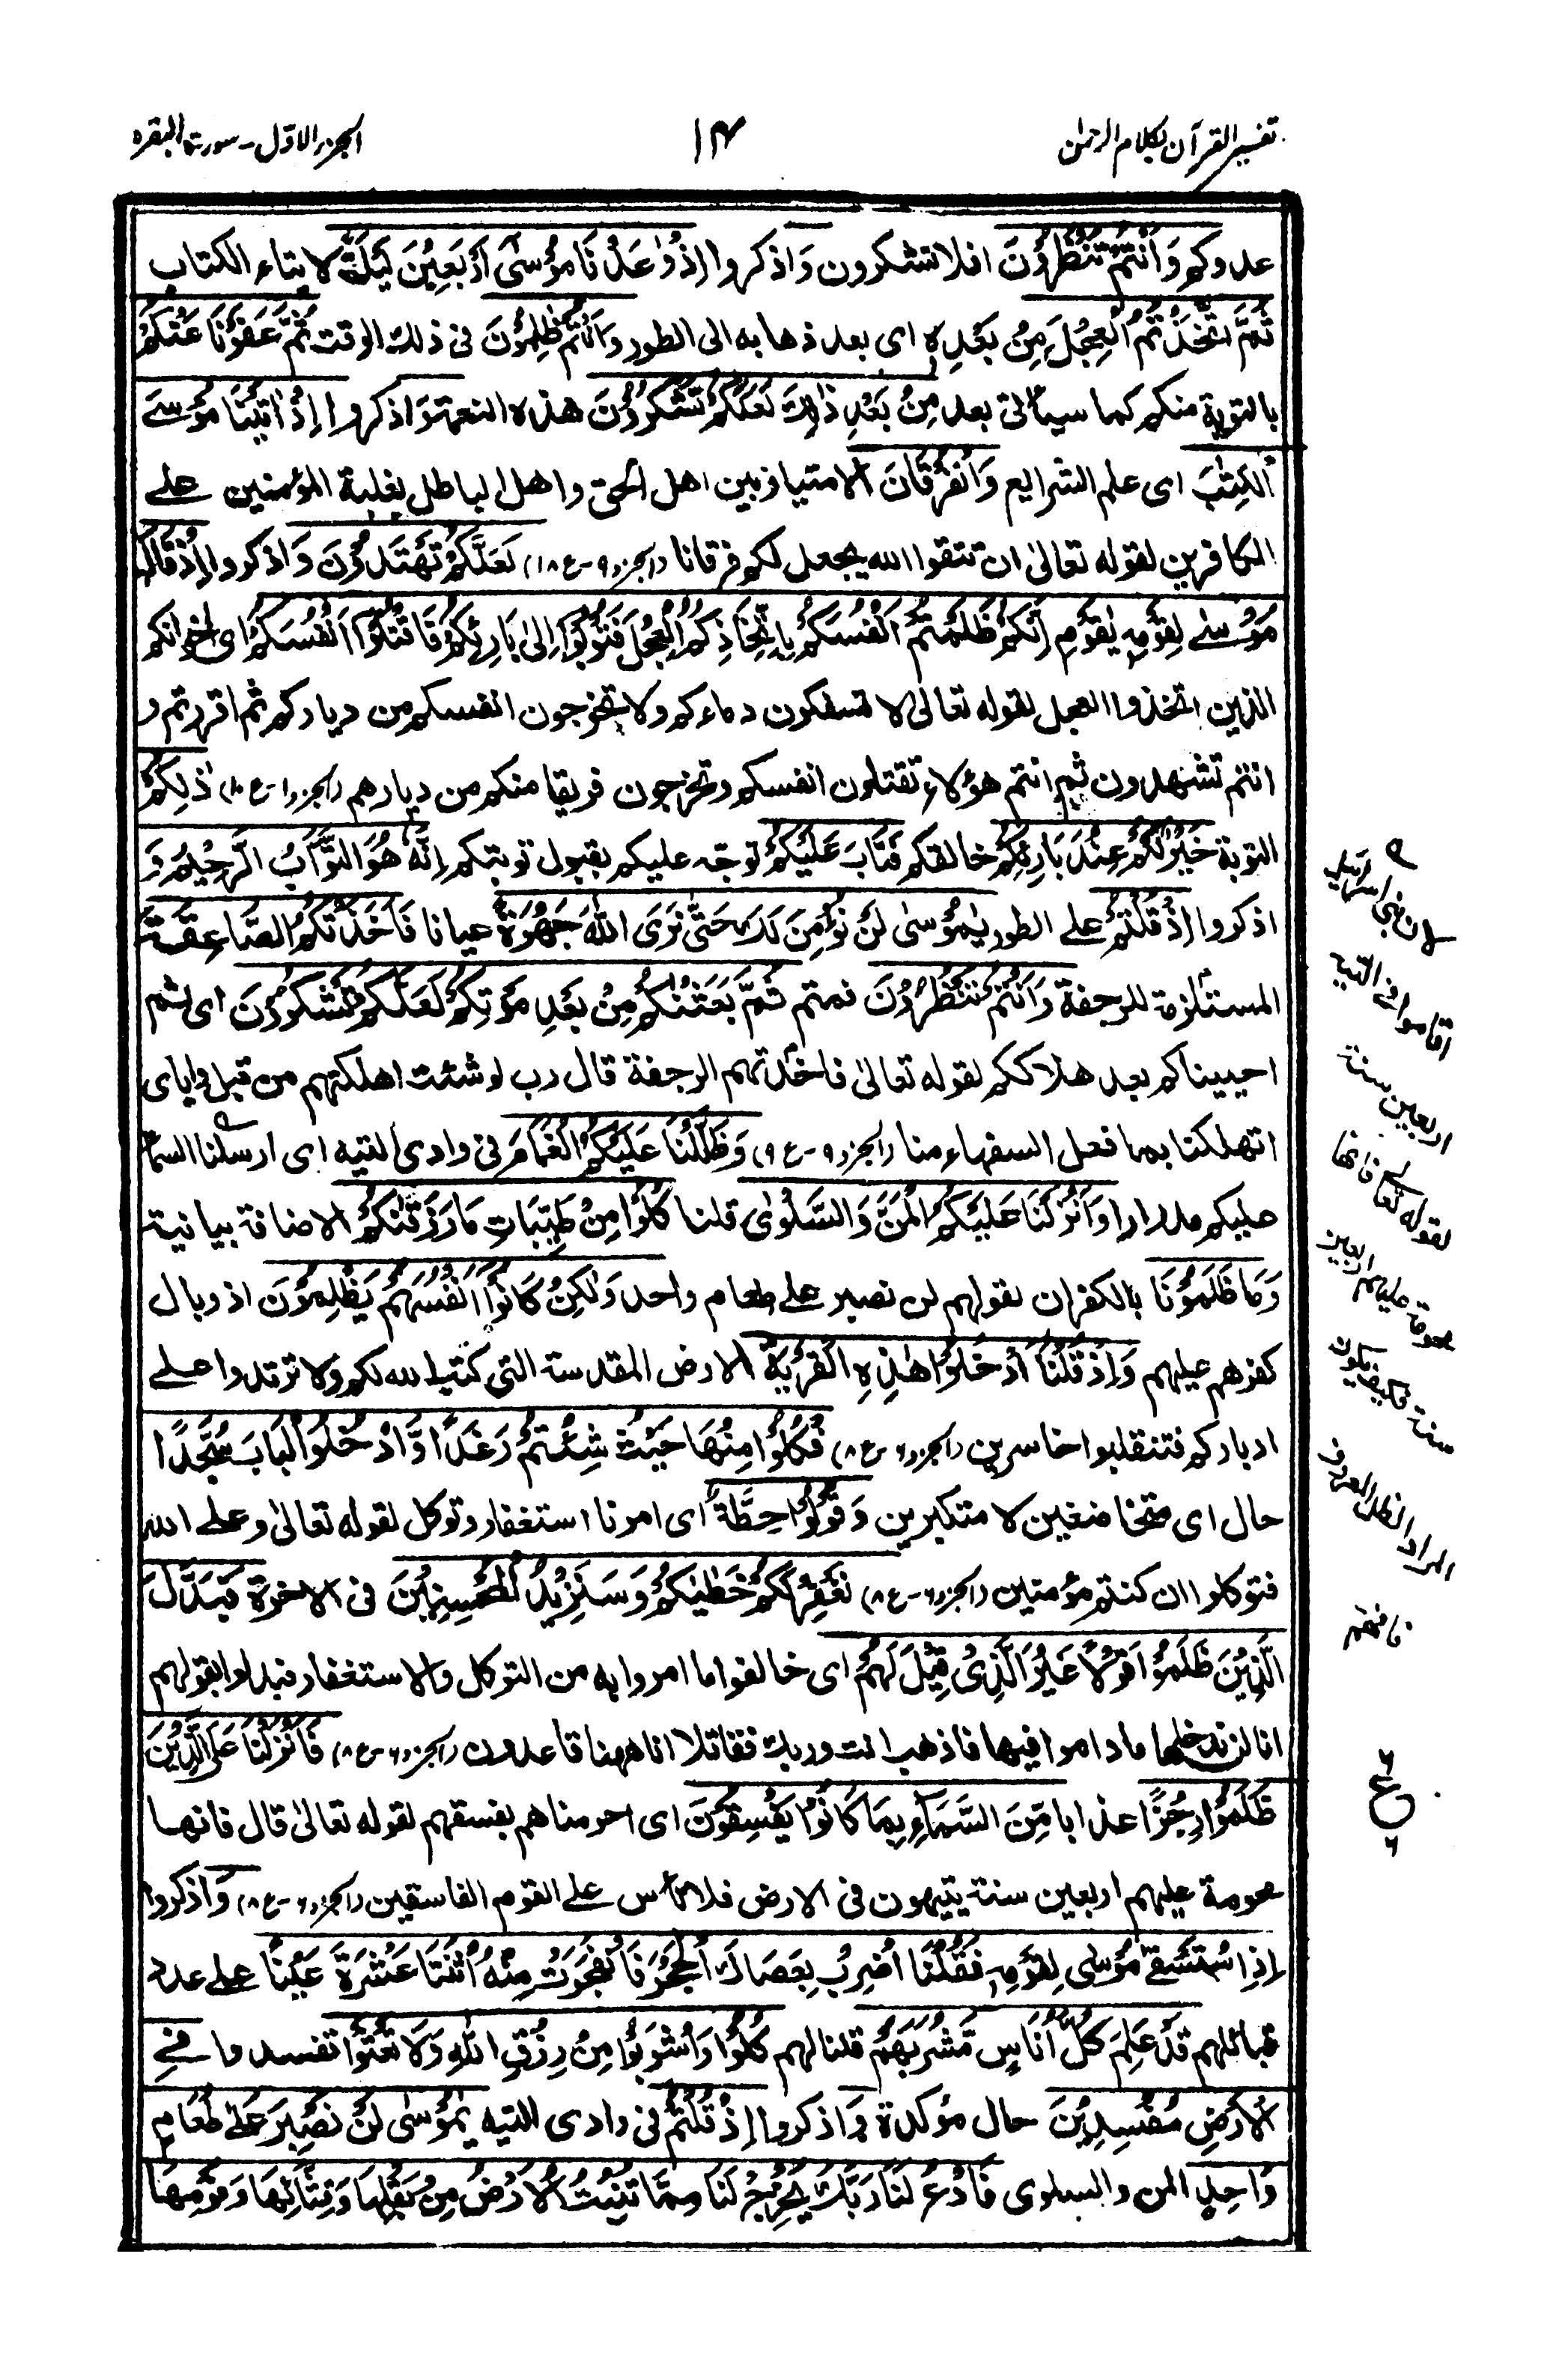 تفسير القرآن بكلام الرحمٰن
١٤
الجزء الاوّل - سورة البقره
عدوكم وَاَنْتُمْ تَنْظُرُوْنَ افلا تشكرون وَاذكروا اِذْ وٰعَدْنَا مُوْسٰٓى اَرْبَعِيْنَ لَيْلَةً لايتاء الكتاب
ثُمَّ اتَّخَذْتُمُ الْعِجْلَ مِنْ بَعْدِهٖ اى بعد ذهابه الى الطور وَاَنْتُمْ ظٰلِمُوْنَ فى ذلك الوقت ثُمَّ عَفَوْنَا عَنْكُمْ
بالتوبة منكم كما سيأتى بعد مِنْ بَعْدِ ذٰلِكَ لَعَلَّكُمْ تَشْكُرُوْنَ هذه النعمة وَاذكروا اِذْ اٰتَيْنَا مُوْسَى
الْكِتٰبَ اى علم الشرايع وَالْفُرْقَانَ الامتياز بين اهل الحق واهل الباطل بغلبة المؤمنين على
الكافرين لقوله تعالىٰ ان تتقوا الله يجعل لكم فرقانا (الجزء ٩ - ع ١٨) لَعَلَّكُمْ تَهْتَدُوْنَ وَاذكروا اِذْ قَالَ
مُوْسٰى لِقَوْمِهٖ يٰقَوْمِ اِنَّكُمْ ظَلَمْتُمْ اَنْفُسَكُمْ بِاتِّخَاذِكُمُ الْعِجْلَ فَتُوْبُوْٓا اِلٰى بَارِئِكُمْ فَاقْتُلُوْٓا اَنْفُسَكُمْ اى اخوانكم
الذين اتخذوا العجل لقوله تعالىٰ لا تسفكون دماءكم ولا تخرجون انفسكم من دياركم ثم اقررتم و
انتم تشهدون ثم انتم هؤلاء تقتلون انفسكم وتخرجون فريقا منكم من ديارهم (الجزء ١ - ع ١٠) ذٰلِكُمْ
التوبة خَيْرٌ لَّكُمْ عِنْدَ بَارِئِكُمْ خالقكم فَتَابَ عَلَيْكُمْ توجّه عليكم بقبول توبتكم اِنَّهٗ هُوَ التَّوَّابُ الرَّحِيْمُ وَ
اذكروا اِذْ قُلْتُمْ على الطور يٰمُوْسٰى لَنْ نُّؤْمِنَ لَكَ حَتّٰى نَرَى اللّٰهَ جَهْرَةً عيانا فَاَخَذَتْكُمُ الصَّاعِقَةُ
المستلزمة للرجفة وَاَنْتُمْ تَنْظُرُوْنَ فمتم ثُمَّ بَعَثْنٰكُمْ مِنْ بَعْدِ مَوْتِكُمْ لَعَلَّكُمْ تَشْكُرُوْنَ اى ثم
احييناكم بعد هلاككم لقوله تعالىٰ فاخذتهم الرجفة قال رب لو شئت اهلكتهم من قبل واياى
اتهلكنا بما فعل السفهاء منا (الجزء ٩ - ع ٩) وَظَلَّلْنَا عَلَيْكُمُ الْغَمَامَ فى وادى التيه اى ارسلنا السماء
عليكم مدرارا وَاَنْزَلْنَا عَلَيْكُمُ الْمَنَّ وَالسَّلْوٰى قلنا كُلُوْا مِنْ طَيِّبَاتِ مَا رَزَقْنٰكُمْ الاضافة بيانية
وَمَا ظَلَمُوْنَا بالكفران لقولهم لن نصبر على طعام واحد وَلٰكِنْ كَانُوْٓا اَنْفُسَهُمْ يَظْلِمُوْنَ اذ وبال
كفرهم عليهم وَاِذْ قُلْنَا ادْخُلُوْا هٰذِهِ الْقَرْيَةَ الارض المقدسة التى كتب الله لكم ولا ترتدوا على
ادباركم فتنقلبوا خاسرين (الجزء ٦ - ع ٨) فَكُلُوْا مِنْهَا حَيْثُ شِئْتُمْ رَغَدًا وَّادْخُلُوا الْبَابَ سُجَّدًا
حال اى متخاضعين لا متكبرين وَقُوْلُوْا حِطَّةٌ اى امرنا استغفار وتوكل لقوله تعالىٰ وعلى الله
فتوكلوا ان كنتم مؤمنين (الجزء ٦ - ع ٨) نَغْفِرْ لَكُمْ خَطٰيٰكُمْ وَسَنَزِيْدُ الْمُحْسِنِيْنَ فى الاخرة فَبَدَّلَ
الَّذِيْنَ ظَلَمُوْا قَوْلًا غَيْرَ الَّذِىْ قِيْلَ لَهُمْ اى خالفوا ما امروا به من التوكل والاستغفار فبدلوا بقولهم
انا لن ندخلها ما داموا فيها فاذهب انت وربك فقاتلا انا ههنا قاعدون (الجزء ٦ - ع ٨) فَاَنْزَلْنَا عَلَى الَّذِيْنَ
ظَلَمُوْا رِجْزًا عذابا مِّنَ السَّمَآءِ بِمَا كَانُوْا يَفْسُقُوْنَ اى احرمناهم بفسقهم لقوله تعالىٰ قال فانها
محرمة عليهم اربعين سنة يتيهون فى الارض فلا تأس على القوم الفاسقين (الجزء ٦ - ع ٨) وَاذكروا
اِذِ اسْتَسْقٰى مُوْسٰى لِقَوْمِهٖ فَقُلْنَا اضْرِبْ بِعَصَاكَ الْحَجَرَ فَانْفَجَرَتْ مِنْهُ اثْنَتَا عَشْرَةَ عَيْنًا على عدد
قبائلهم قَدْ عَلِمَ كُلُّ اُنَاسٍ مَّشْرَبَهُمْ قلنا لهم كُلُوْا وَاشْرَبُوْا مِنْ رِزْقِ اللّٰهِ وَلَا تَعْثَوْا تفسدوا فِى
الْاَرْضِ مُفْسِدِيْنَ حال مؤكدة وَاذكروا اِذْ قُلْتُمْ فى وادى التيه يٰمُوْسٰى لَنْ نَصْبِرَ عَلٰى طَعَامٍ
وَاحِدٍ المن والسلوى فَادْعُ لَنَا رَبَّكَ يُخْرِجْ لَنَا مِمَّا تُنْبِتُ الْاَرْضُ مِنْ بَقْلِهَا وَقِثَّائِهَا وَفُوْمِهَا
لان بنى اسرائيل
اقاموا فى التيه
اربعين سنة
لقوله تعالى فانها
محرمة عليهم اربعين
سنة فكيف يكون
المراد الظل المعروف
فافهم
٦
ع
٦